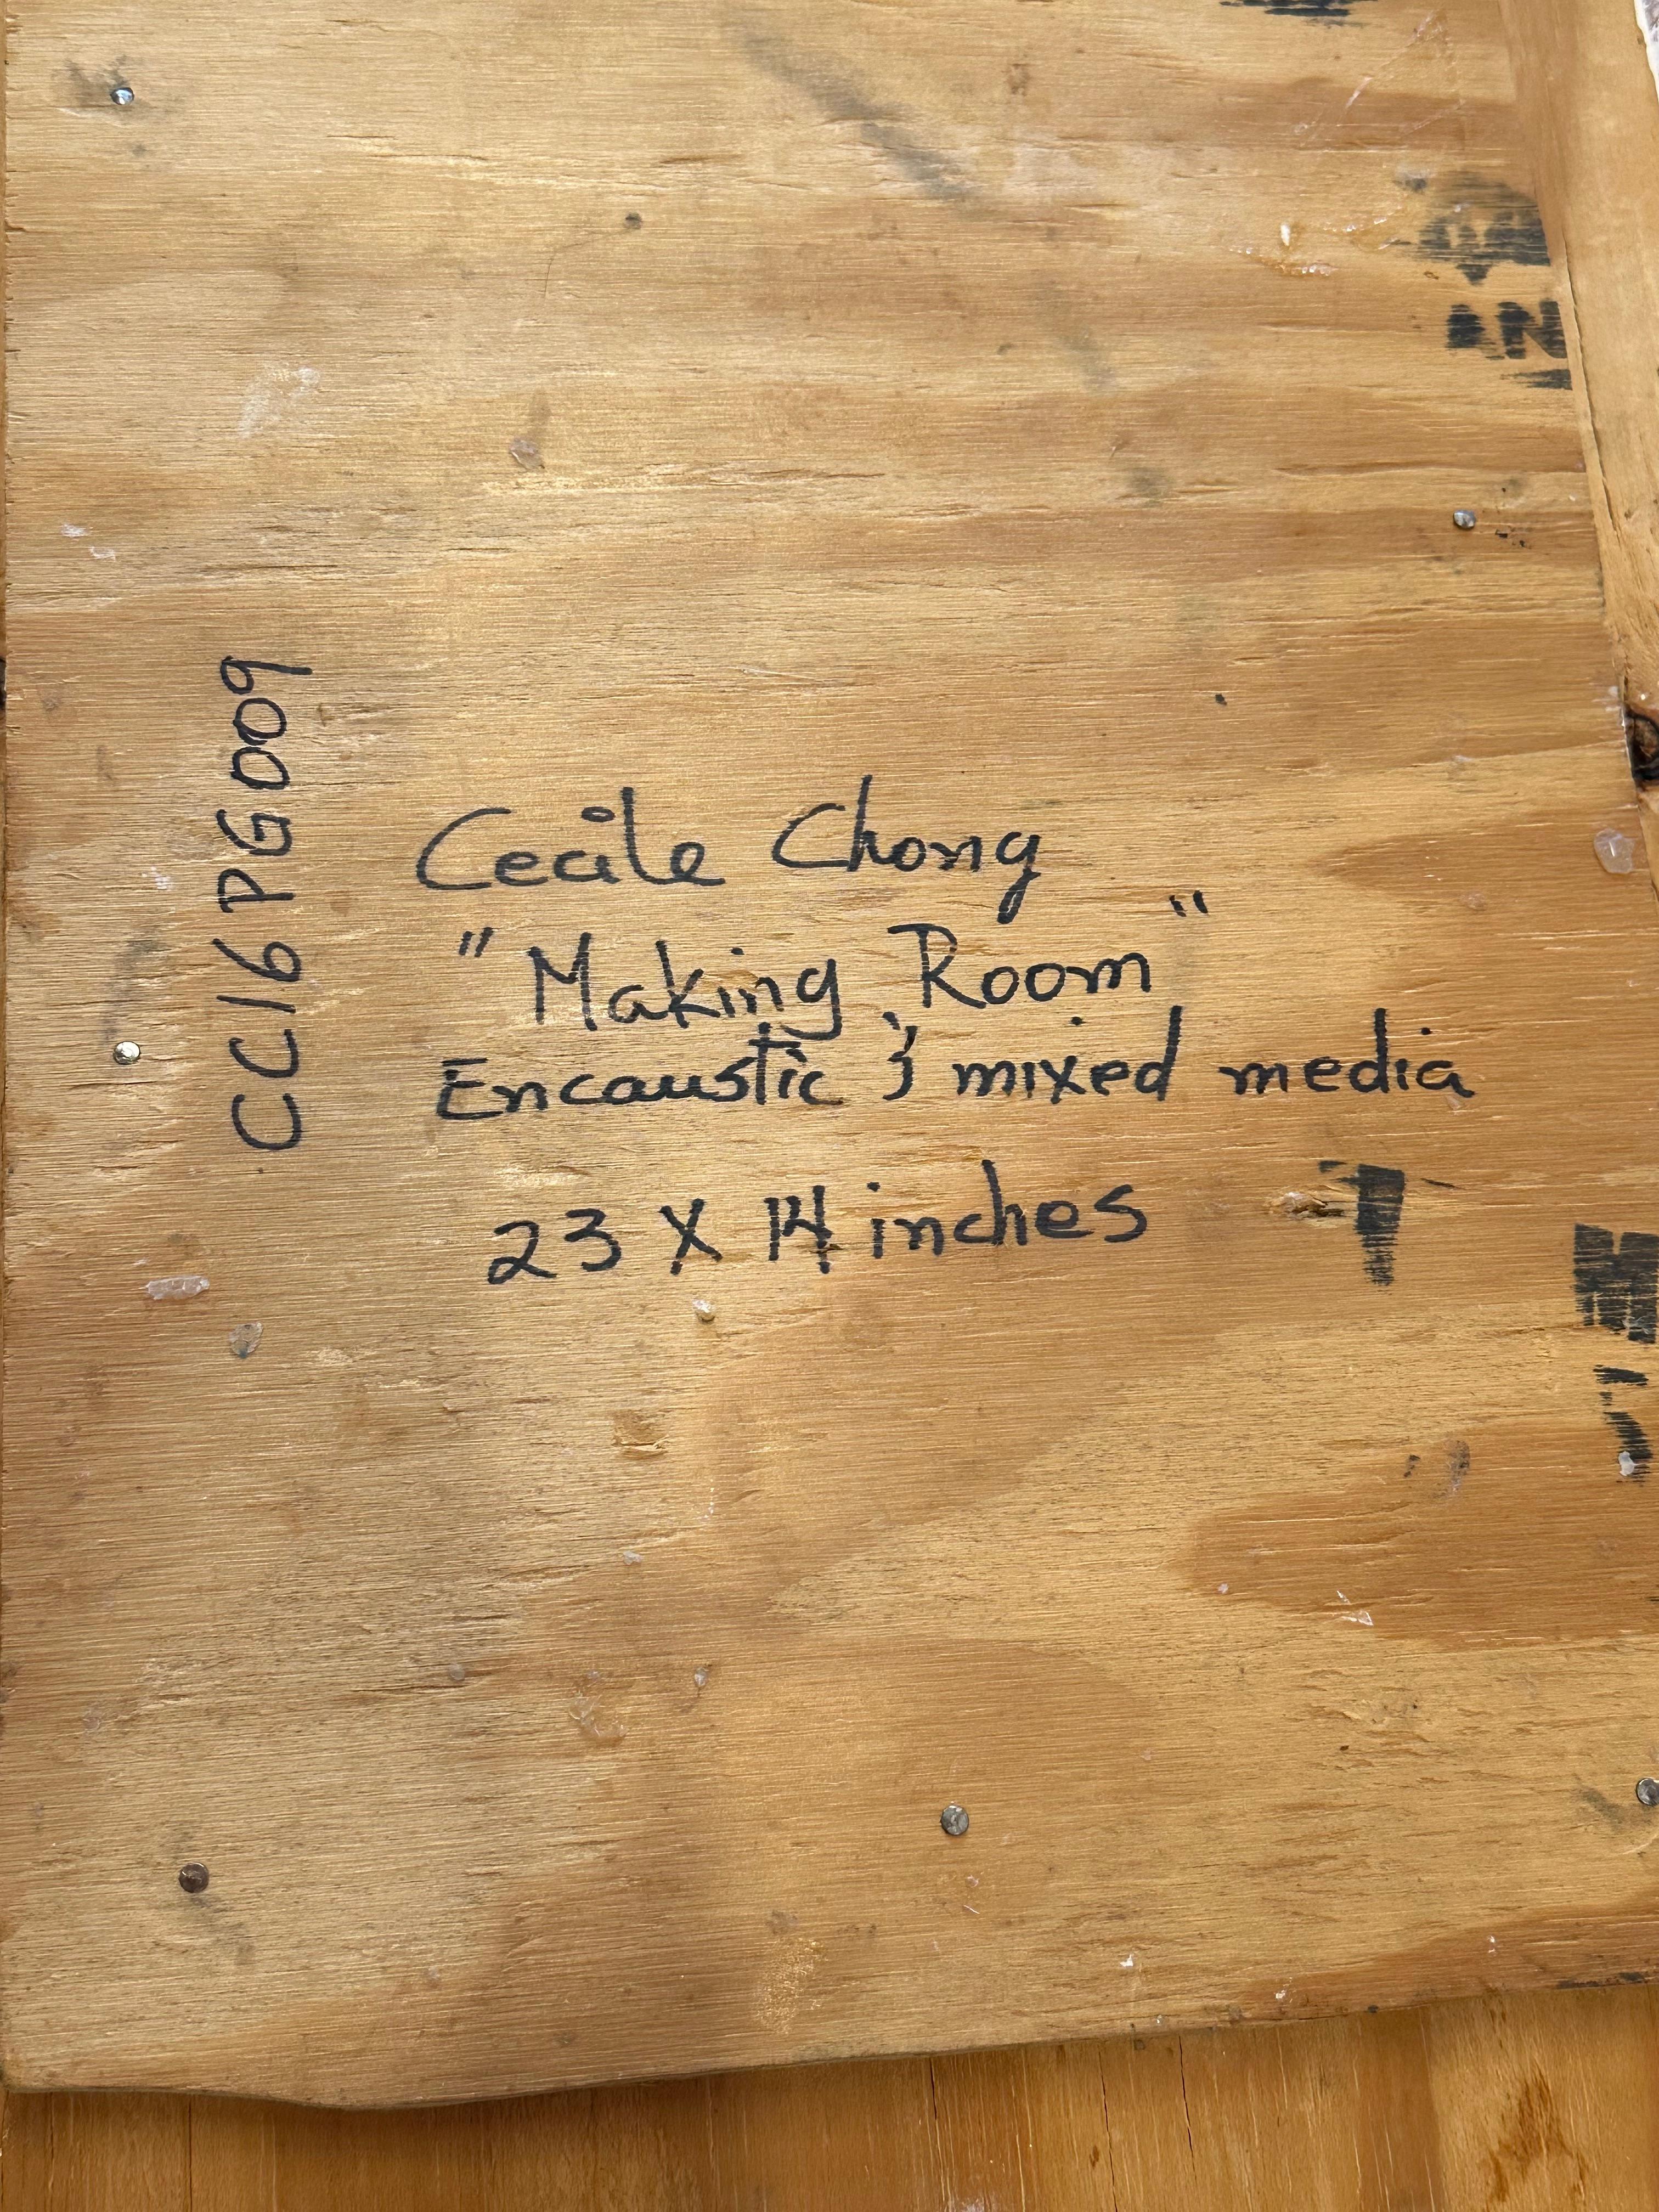 CC16PG009
Cecile Chong
"Making Room"
Encaustic & mixed media
23 X 14 inches
AN